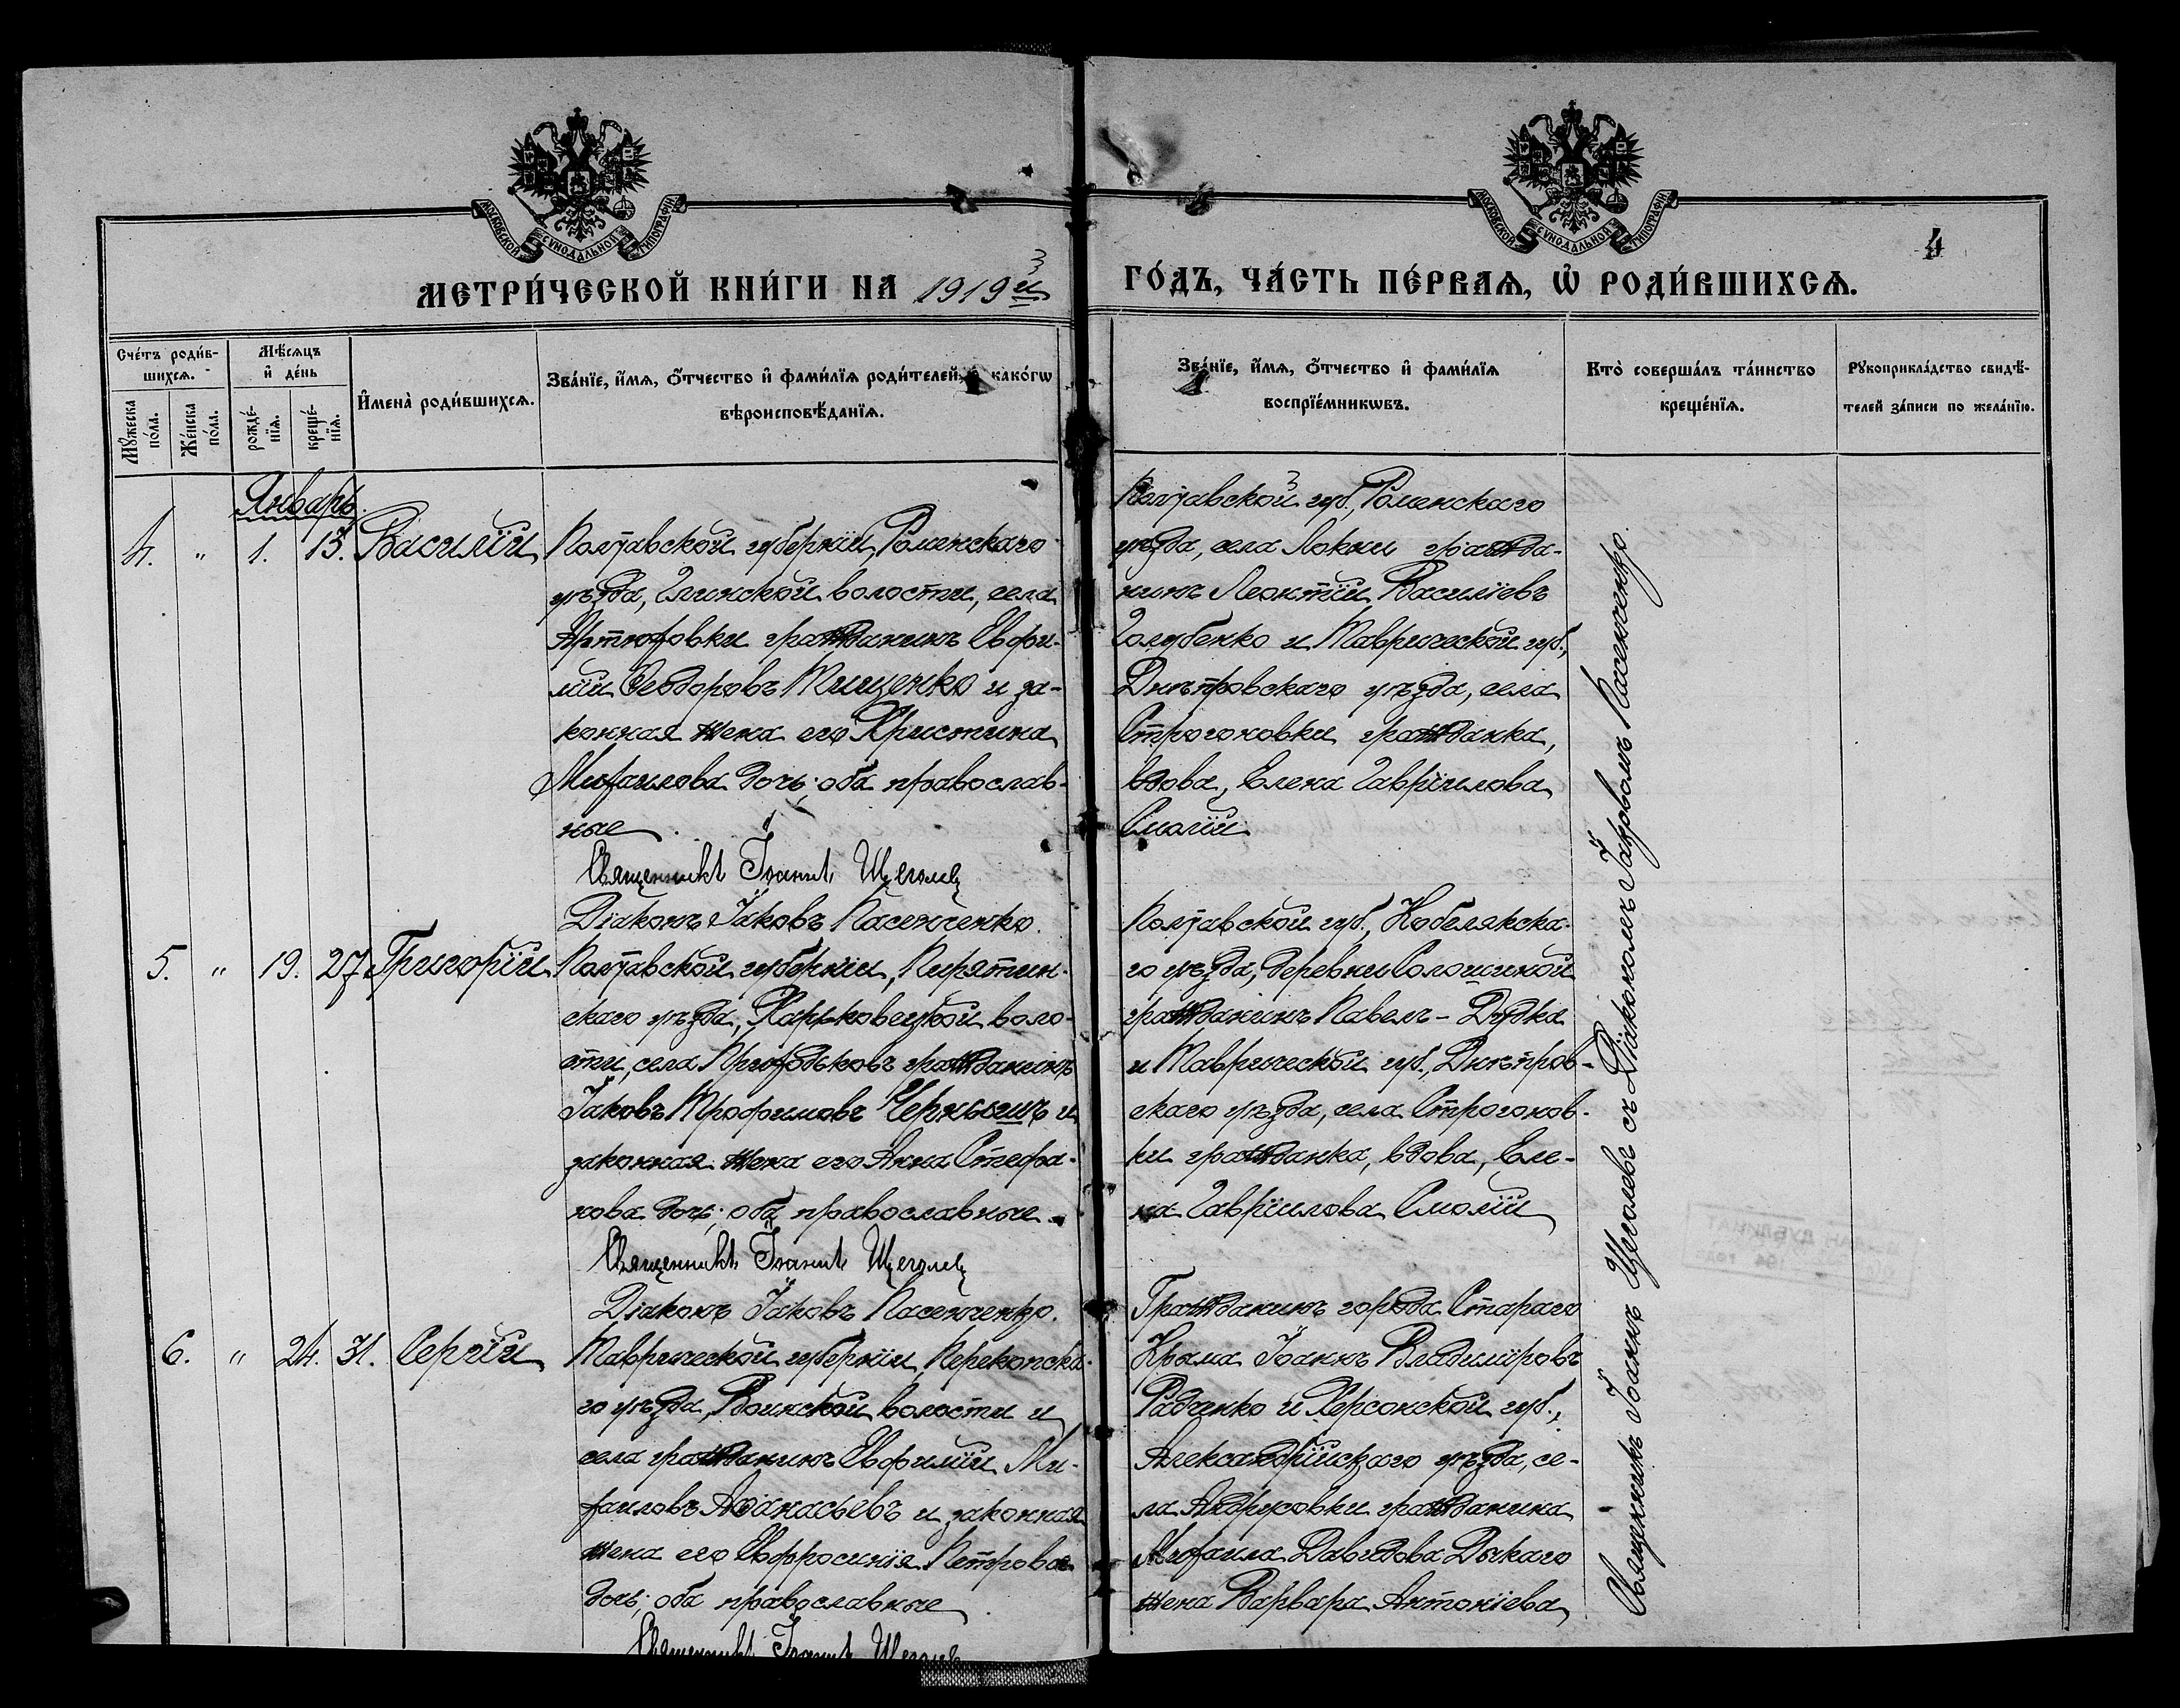 МОСКОВСКОЙ СѴНОДАЛЬНОЙ ТИПОГРАФІИ
МОСКОВСКОЙ СѴНОДАЛЬНОЙ ТИПОГРАФІИ
4
МЕТРИ́ЧЕСКОЙ КНИ́ГИ НА 1919й ГО́ДЪ, ЧА́СТЬ ПЕ́РВАѦ, Ѡ҆ РОДИ́ВШИХСѦ.
Сче́тъ роди́в-
шихсѧ.
Мꙋ́жеска по́ла.
Же́нска по́ла.
Мѣ́сѧцъ
и҆ де́нь
рожде́-
нїѧ.
креще́-
нїѧ.
И҆мена̀ роди́вшихсѧ.
Зва́нїе, и҆́мѧ, ѻ҆́тчество и҆ фами́лїѧ роди́телей, и҆ како́гѡ
вѣроисповѣ́данїѧ.
Зва́нїе, и҆́мѧ, ѻ҆́тчество и҆ фами́лїѧ
воспрїе́мникѡвъ.
Кто̀ соверша́лъ та́инство
креще́нїѧ.
Рꙋкоприкла́дство свидѣ́-
телей за́писи по жела́нїю.
Январь.
4. " 1. 13. Василій
Полтавской губерніи, Роменскаго
уѣзда, Глинской волости, села
Артюховки гражданинъ Евфи-
мій Ѳеодоровъ Тищенко и за-
конная жена его Христина
Михаилова дочь; оба православ-
ные
Священникъ Іоаннъ Щеголев
Діаконъ Іаковъ Пасенченко.
Полтавской губ., Роменскаго
уѣзда, села Локни гражда-
нинъ Леонтій Василіевъ
Голубенко и Таврической губ.,
Днѣпровскаго уѣзда, села
Строгоновки гражданка,
вдова, Елена Гавріилова
Смолій
5. " 19. 27 Григорій
Полтавской губерніи, Пирятин-
скаго уѣзда, Харьковецкой воло-
сти, села Приходьковъ гражданинъ
Іаковъ Трофимовъ Чернышъ и
законная жена его Анна Стефа-
нова дочь; оба православные
Священникъ Іоаннъ Щеголев
Діаконъ Іаковъ Пасенченко.
Полтавской губ., Кобелякска-
го уѣзда, деревни Солошиной
гражданинъ Павелъ - Дудка
и Таврической губ., Днѣпров-
скаго уѣзда, села Строгонов-
ки гражданка, вдова, Еле-
на Гавріилова Смолій
6. " 24. 31. Сергій
Таврической губерніи, Перекопска-
го уѣзда, Воинской волости и
села гражданинъ Евфимій Ми-
хаиловъ Аѳанасьевъ и законная
жена его Евфросинія Петрова
дочь; оба православные
Священникъ Іоаннъ Щеголев
Гражданинъ города Стараго
Крыма Іоаннъ Владиміровъ
Радченко и Херсонской губ.,
Александрійскаго уѣзда, се-
ла Андрусовки гражданина
Михаила Давидова Дикаго
жена Варвара Антоніева
Священникъ Іоаннъ Щеголевъ съ Діакономъ Іаковомъ Пасенченко.